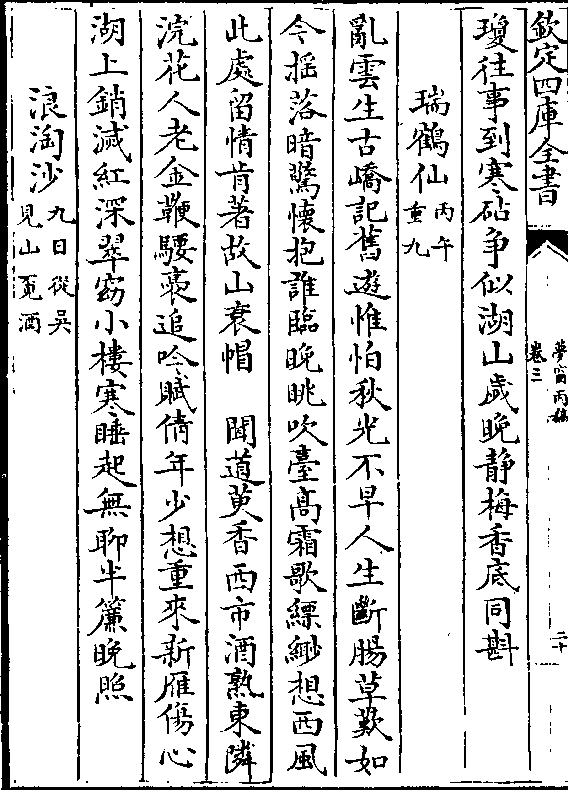 欽定四庫全書
夢窗丙稿
卷三
二十
瓊往事到寒砧争似湖山歲晚靜梅香底同斟
瑞鶴仙
丙午
重九
亂雲生古嶠記舊遊惟怕秋光不早人生斷腸草歎如
今揺落暗驚懷抱誰臨晚眺吹臺髙霜歌縹緲想西風
此處留情肯著故山衰帽　聞道萸香西市酒熟東隣
浣花人老金鞭騕褭追吟賦倩年少想重來新雁傷心
湖上銷減紅深翠窈小樓寒睡起無聊半簾晚照
浪淘沙
九日從吳
見山覔酒